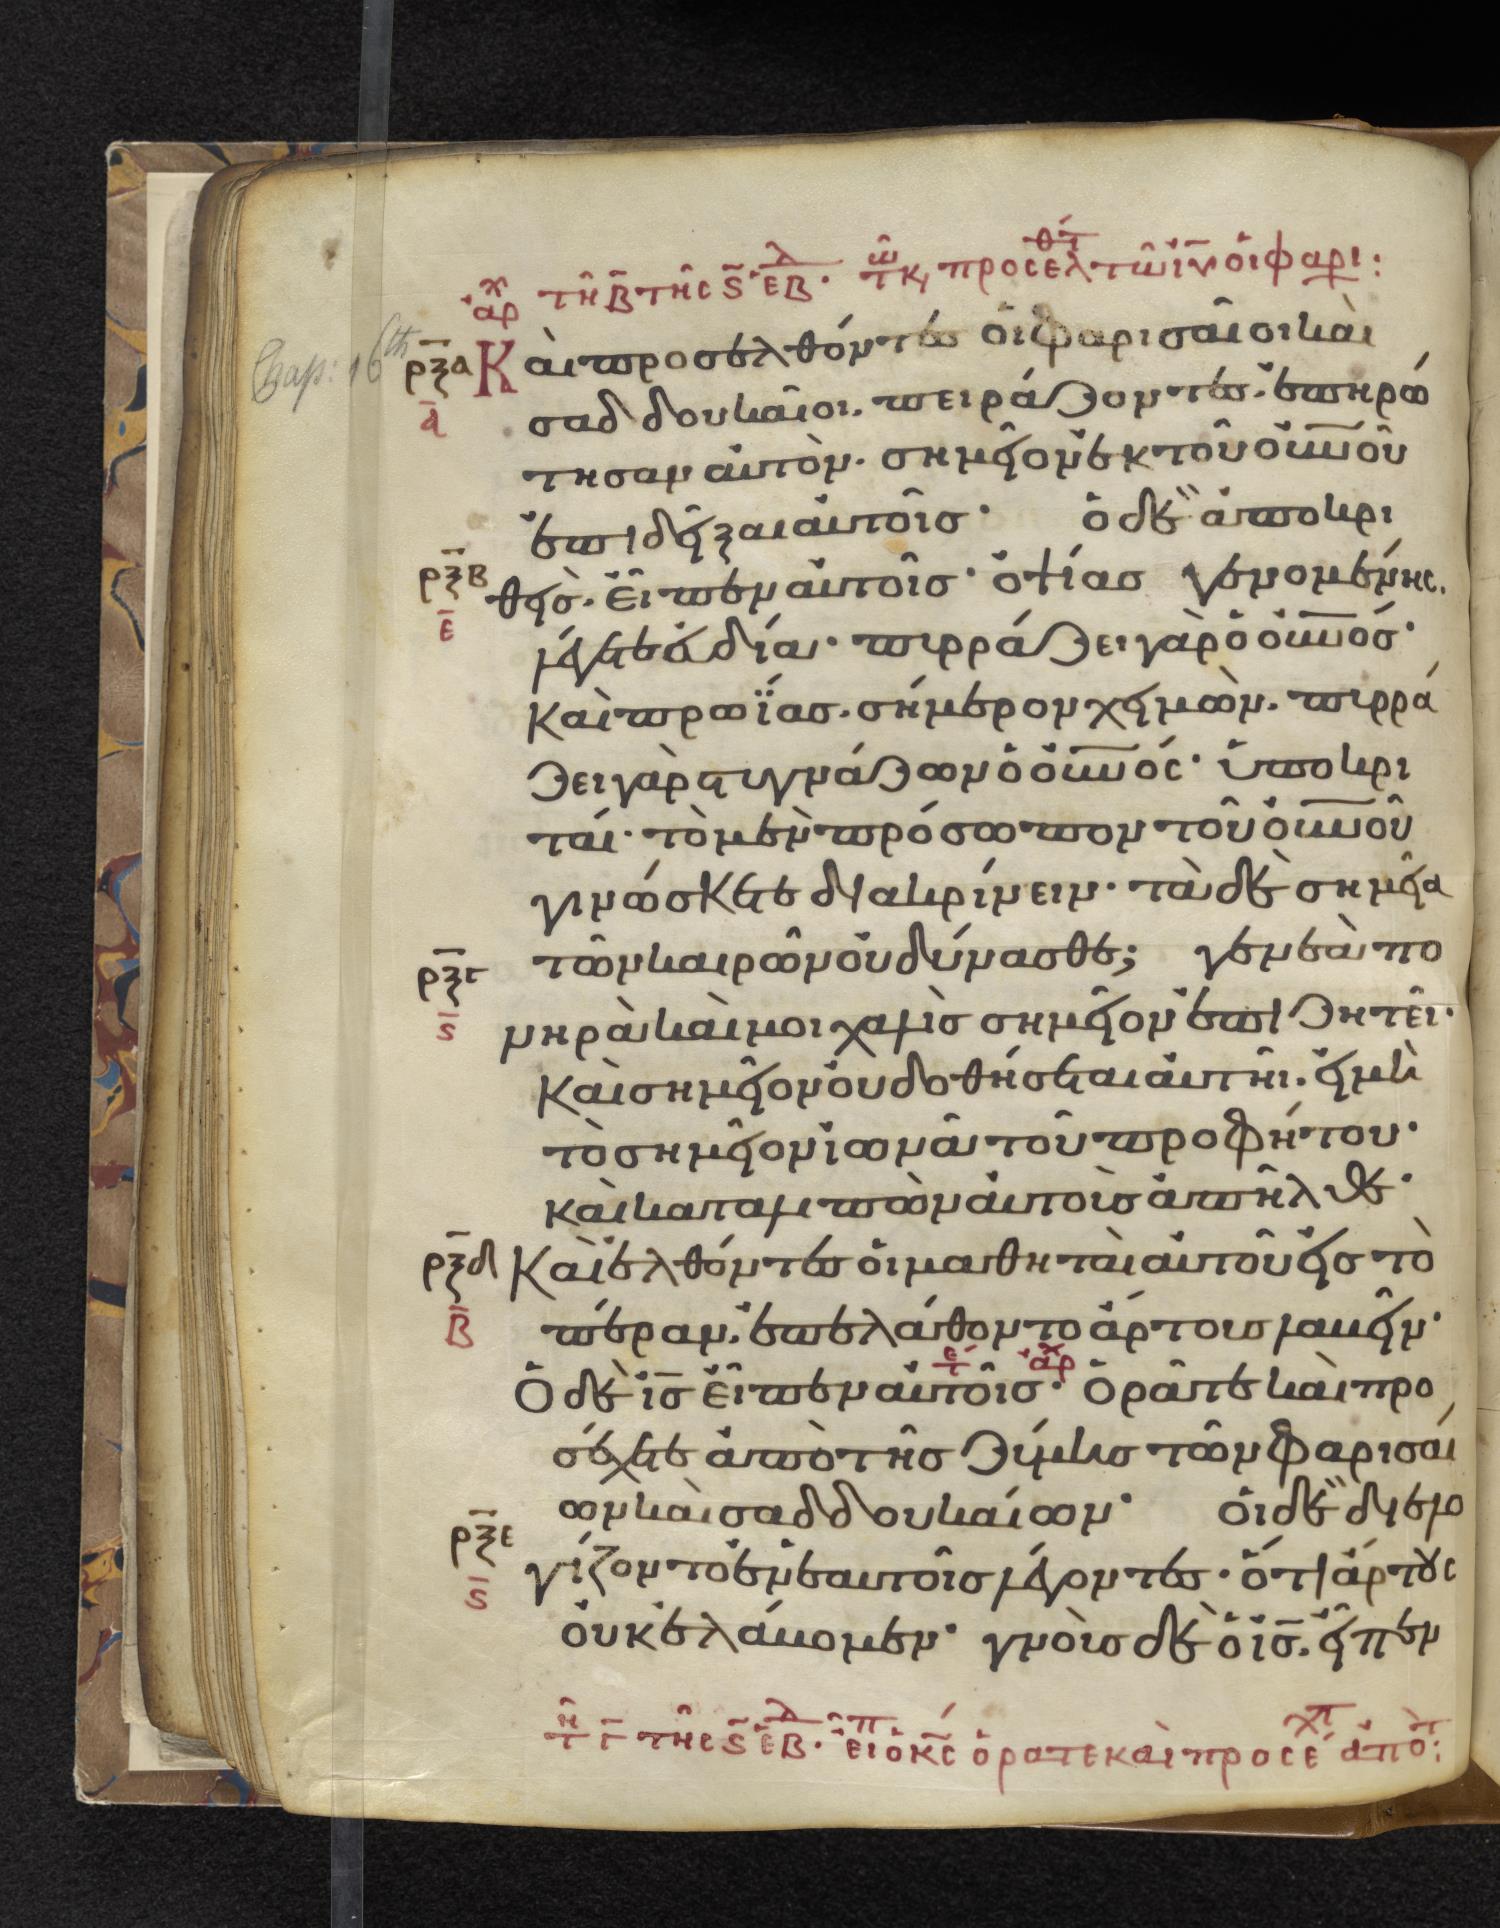 ἀρχ τῆ β̄ τῆς ς̄ ἑβ. τῶ κ, προσελθτ τῶ ἰῡ οἱ φαρι:
Chap: 16th
ρξα Καὶ προσελθόντες οἱ φαρισαῖοι καὶ
ᾱ
σαδδουκαῖοι. πειράζοντες. ἐπηρώ
τησαν αὐτὸν. σημεῖον ἐκ τοῦ οὐνοῦ
ἐπιδεῖξαι αὐτοῖς· ὁ δὲ ἀποκρι
ρξβ θεὶς. εἶπεν αὐτοῖς· ὀψίας γενομένης.
ε̄
λέγετε εὐδία· πυρράζει γὰρ ὁ οὐνός·
Καὶ πρωΐας. σήμερον χειμὼν. πυρρά
ζει γὰρ στυγνάζων ὁ οὐνός· ὑποκρι
ταί· τὸ μὲν πρόσωπον τοῦ οὐνοῦ
γινώσκετε διακρίνειν· τὰ δὲ σημεῖα
τῶν καιρῶν οὐ δύνασθε; γενεὰ πο
ρξγ
ς̄
νηρὰ καὶ μοιχαλὶς σημεῖον ἐπιζητεῖ·
Καὶ σημεῖον οὐ δοθήσεται αὐτῆι. εἰ μὴ
τὸ σημεῖον ἰωνᾶ τοῦ προφήτου·
καὶ καταλιπὼν αὐτοὺς ἀπῆλθε·
ρξδ Καὶ ἐλθόντες οἱ μαθηταὶ αὐτοῦ εἰς τὸ
β̄
πέραν. ἐπελάθοντο ἄρτους λαβεῖν·
τε ἀρχ
Ὁ δὲ ἰς̄ εἶπεν αὐτοῖς· ὁρᾶτε καὶ προ
σέχετε ἀπὸ τῆς ζύμης τῶν φαρισαί
ων καὶ σαδδουκαίων· οἱ δὲ διελο
ρξε
ς̄
γίζοντο ἐν ἑαυτοῖς λέγοντες· ὅτι ἄρτους
οὐκ ἐλάβομεν· γνοὺς δὲ ὁ ἰς̄. εἶπεν
τῆ γ̄ τῆς ς̄ ἑβ. εἶπ ὁ κς̄ ὁρατε καὶ προσέχτ ἀπὸ τ: